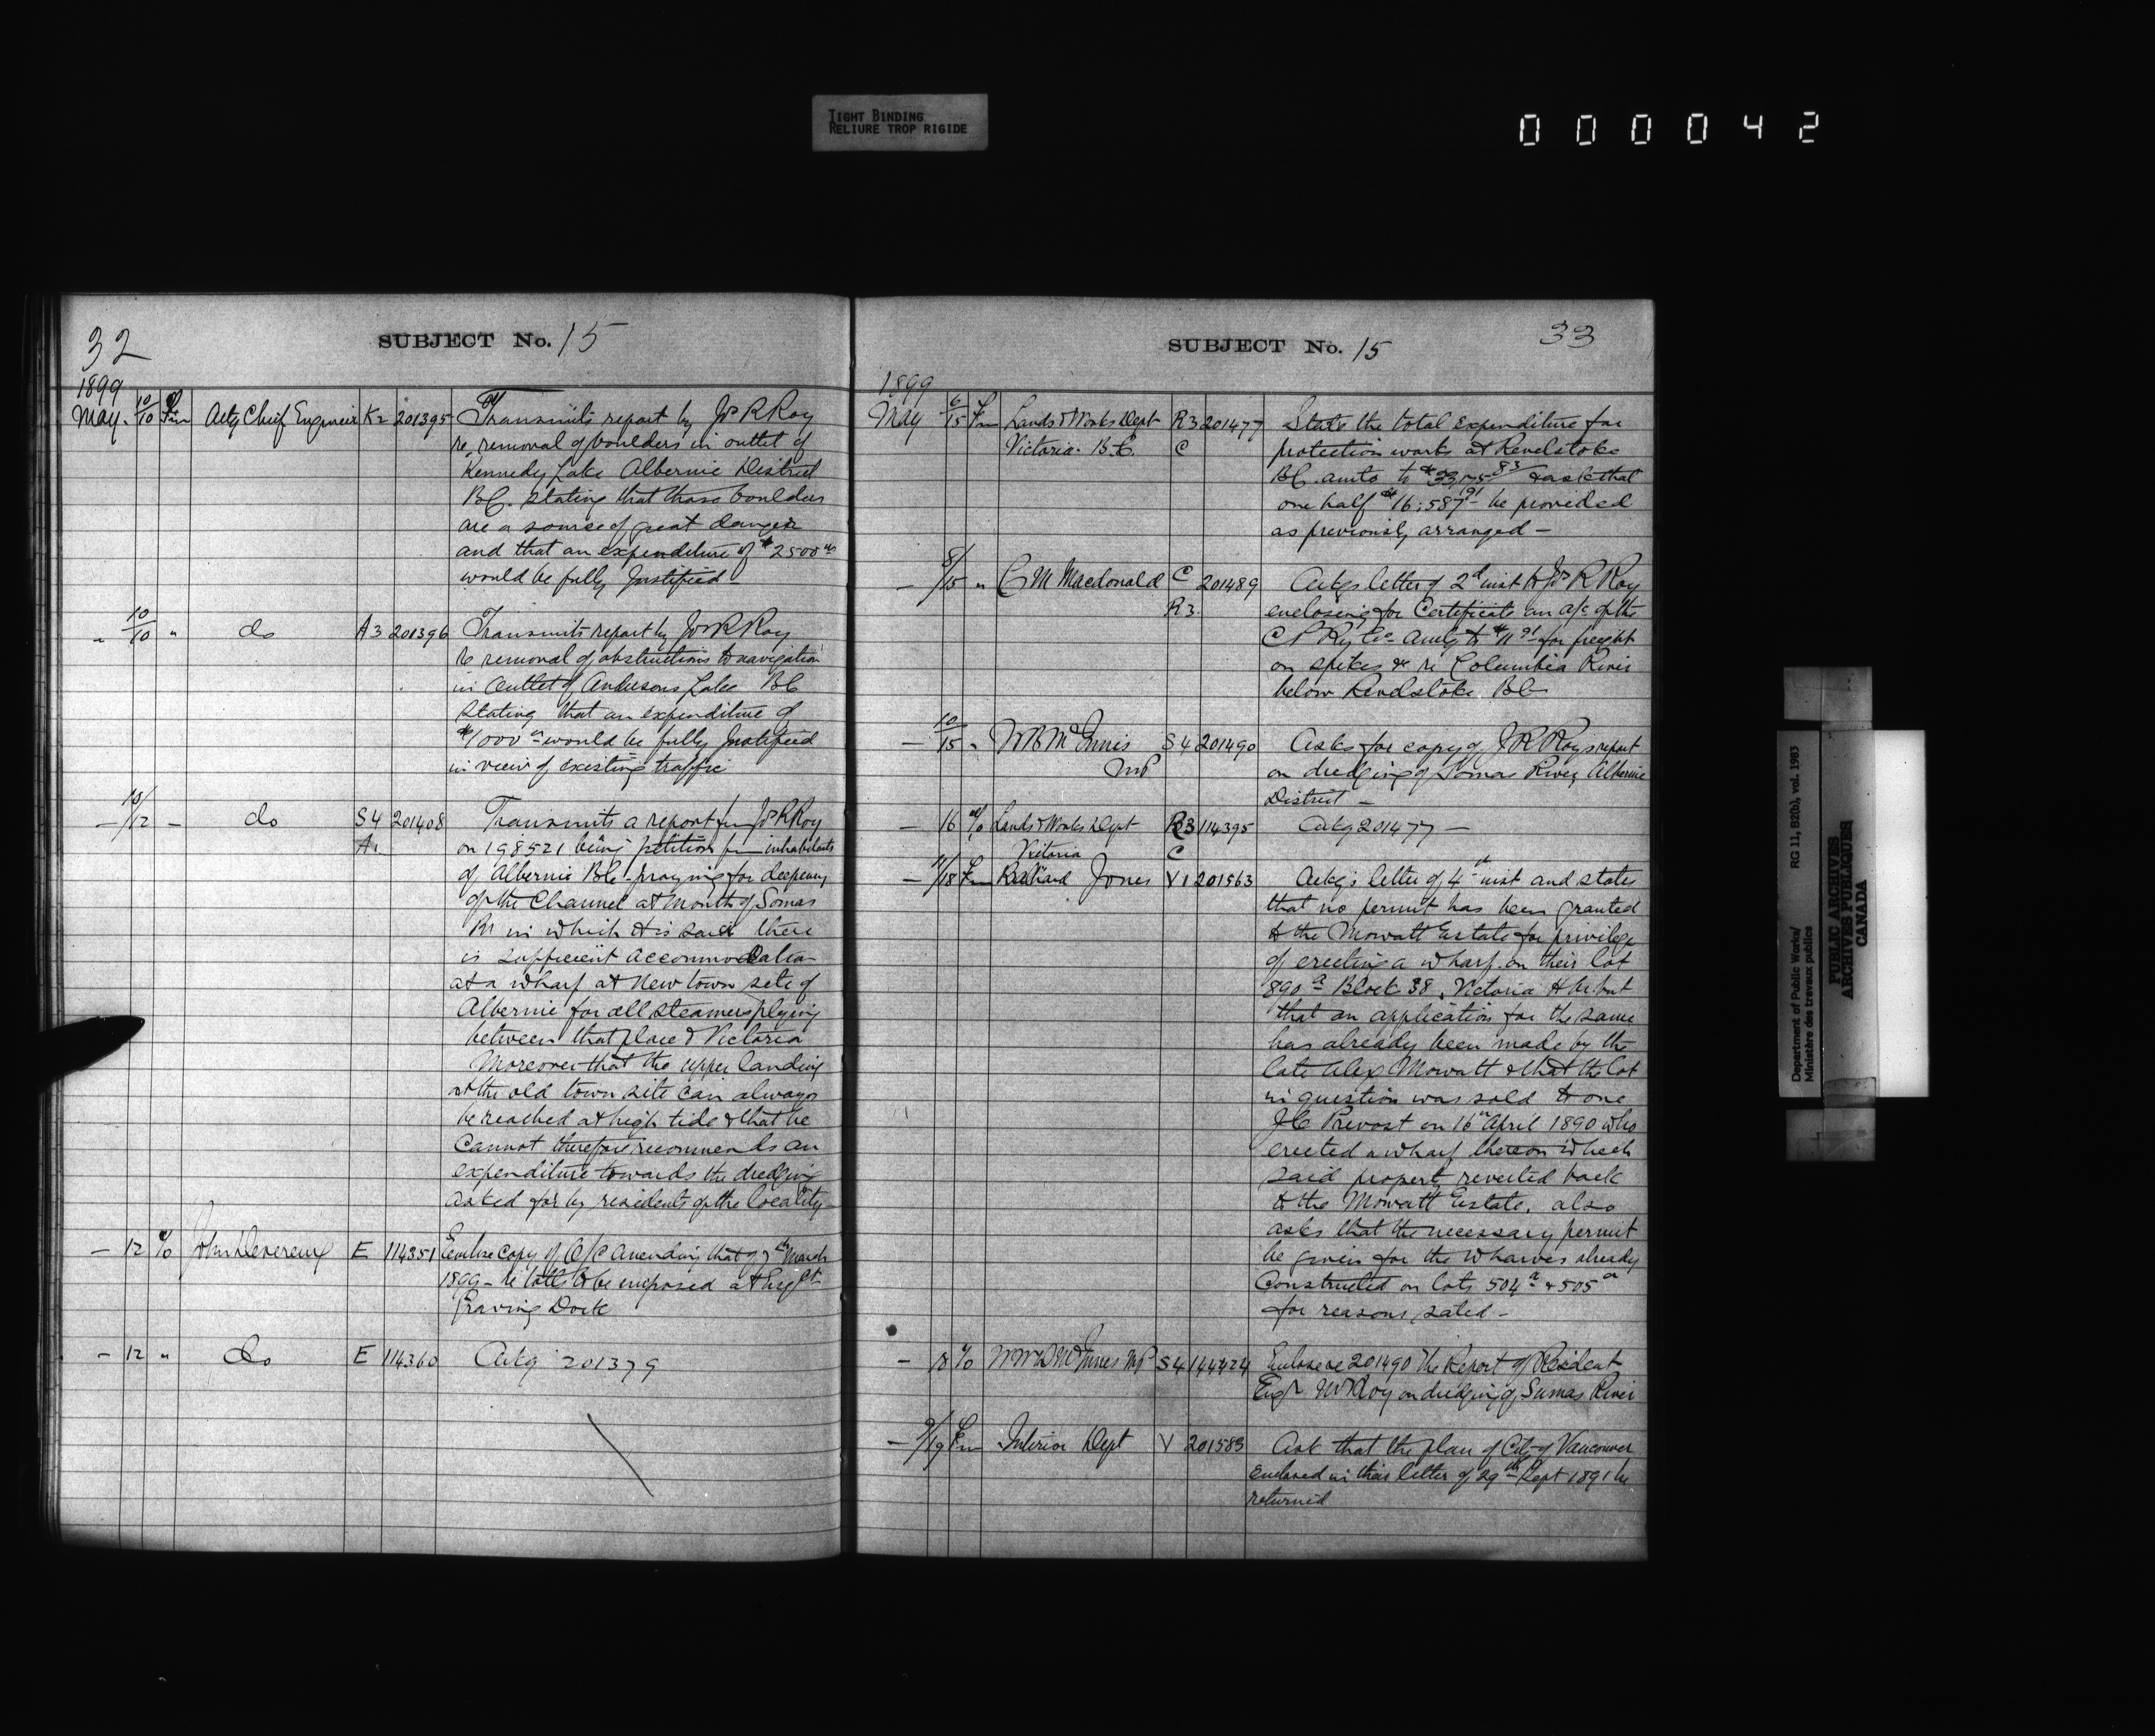 TIGHT BINDING
RELIURE TROP RIGIDE
000042
32
SUBJECT No. 15
1899
May. 10/10 Fm Actg Chief Engineer K2 201395 Transmits report by Jos R Roy
re removal of boulders in outlet of
Kennedy Lake Albernie District
B.C. stating that those boulders
are a source of great danger
and that an expenditure of $2500
would be fully Justified —
" 10/10 " do A3 201396 Transmits report by Jos R Roy
re removal of obstructions to navigation
in Outlet of Andersons Lake BC
stating that an expenditure of
$1000 would be fully Justified
in view of existing traffic
— 10/12 — do S4 201408 Transmits a report fm Jos R Roy
A1 on 198521 being petition fm inhabitants
of Albernie BC praying for deepening
of the Channel at Mouth of Somas
Rr in which it is said there
is sufficient accommodation
at a wharf at New town site of
Albernie for all steamers plying
between that place & Victoria
Moreover that the upper landing
at the old town site can always
be reached at high tide & that he
Cannot therefore recommends an
expenditure towards the dredging
asked for by residents of the locality —
— 12 % John Devereux E 114351 Enclose copy of O/C amending that of 7th March
1899 — re tolls to be imposed at Esqlt
Graving Dock
— 12 " do E 114360 Ackg 201379
33
SUBJECT No. 15
1899
May 6/15 Fm Lands & Works Dept R3 201477 State the total expenditure for
Victoria. B.C. C protection works at Revelstoke
BC. amts to $33,175 83 & ask that
one half $16,587 91 be provided
as previously arranged —
— 8/15 " C M Macdonald C 201489 Ackgs letter of 2d inst to Jos R Roy
R3. enclosing for Certificate an a/c of the
C P Ry Co amtg to $11 91 for freight
on spikes & re Columbia River
below Revelstoke BC
— 10/15 " McInnis S4 201490 Asks for copy of J R Roys report
MP on dredging of Somas River Albernie
District —
— 16 % Lands & Works Dept R3 114395 Ackg 201477 —
Victoria C
— 11/18 Fm Richard Jones V1 201563 Ackg's letter of 4th inst and states
that no permit has been granted
to the Mowatt Estate for privilege
of erecting a wharf on their lot
890a Block 38, Victoria Hbr. but
that an application for the same
has already been made by the
late Alex Mowatt & that the lot
in question was sold to one
J C Prevost on 16th April 1890 who
erected a wharf thereon which
said property reverted back
to the Mowatt Estate. also
asks that the necessary permit
be given for the wharves already
Constructed on lots 504a & 505a
for reasons stated —
— 18 % McInnes MP S4 144424 Enclose re 201490 The Report of Resident
Engr Mr Roy on dredging of Sumas River
— 9/19 Fm Interior Dept V 201583 Ask that the plan of City of Vancouver
enclosed in their letter of 29th Sept 1891 be
returned
Department of Public Works/
Ministère des travaux publics
RG 11, B2(b), vol. 1983
PUBLIC ARCHIVES
ARCHIVES PUBLIQUES
CANADA